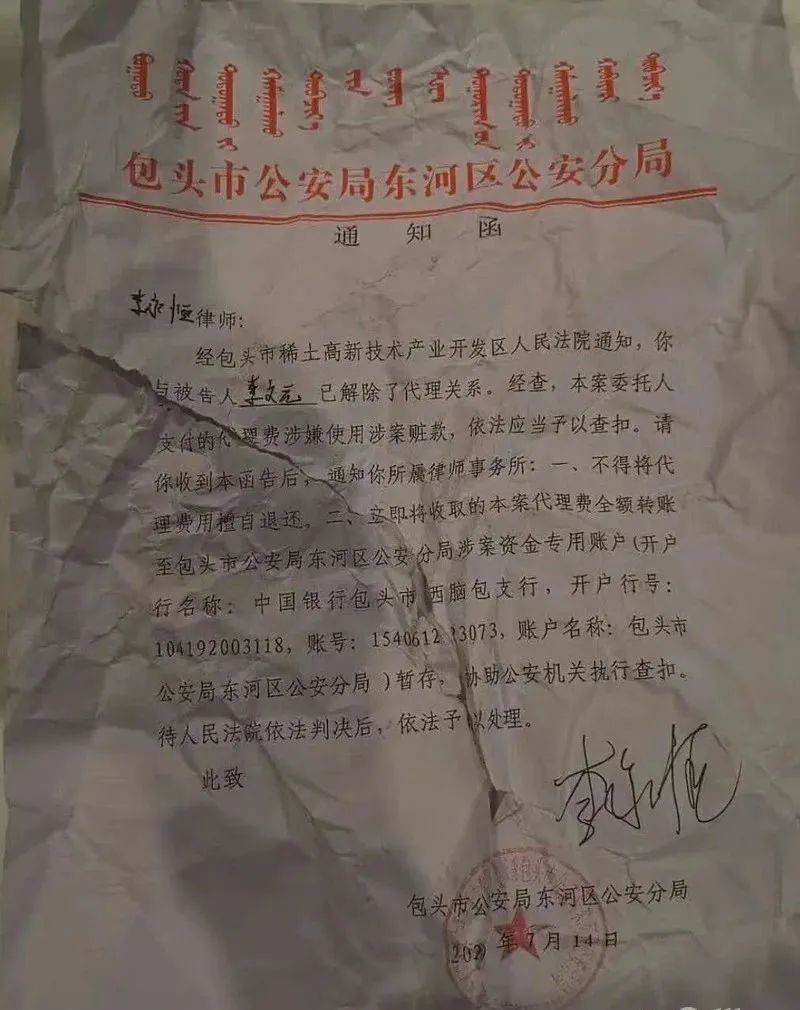 包头市公安局东河区公安分局
通知函
李永恒律师：
经包头市稀土高新技术产业开发区人民法院通知，你
与被告人李文元已解除了代理关系。经查，本案委托人
支付的代理费涉嫌使用涉案赃款，依法应当予以查扣。请
你收到本函告后，通知你所属律师事务所：一、不得将代
理费用擅自退还。二、立即将收取的本案代理费全额转账
至包头市公安局东河区公安分局涉案资金专用账户(开户
行名称：中国银行包头市西脑包支行，开户行号：
104192003118，账号：，账户名称：包头市
公安局东河区公安分局)暂存，协助公安机关执行查扣。
待人民法院依法判决后，依法予以处理。
此致
李永恒
包头市公安局东河区公安分局
年7月14日